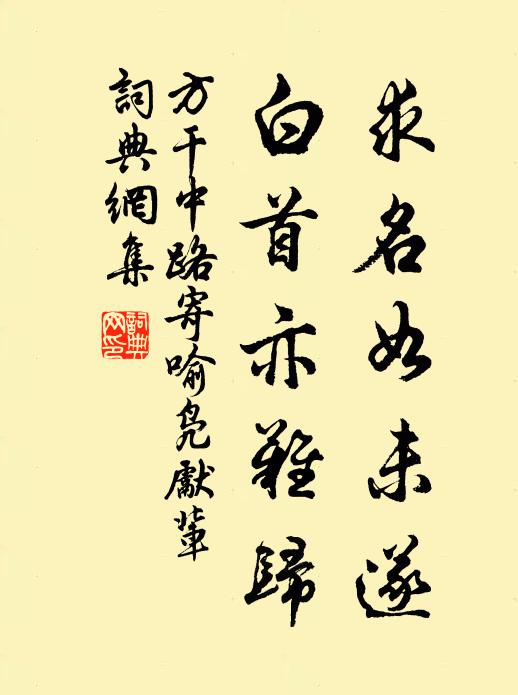 求名如未遂
白首亦難歸
方干中路寄喻凫獻輩
詞典網集
詞典网印